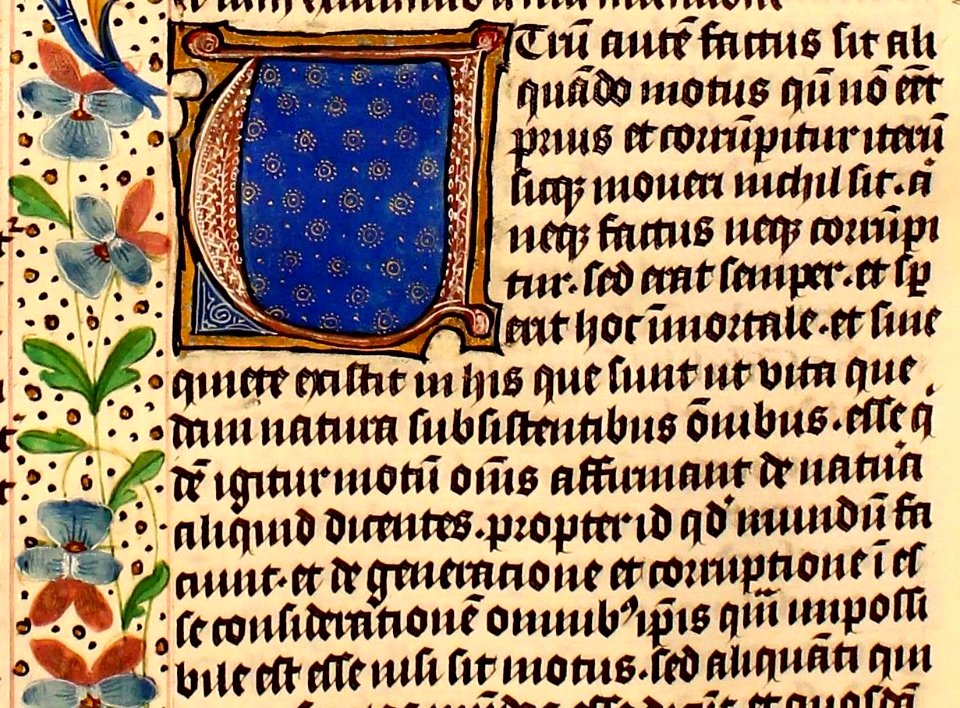 Utrū autē factus sit ali
quādo motus qū nō eēt
prius et corrūpitur iterū
sicqꝫ moveri nichil sit. a̍
neqꝫ factus neqꝫ corrūpi
tur. sed erat semper. et sp̄
erit hoc īmortale. et sine
quiete existit in his que sunt ut vita que
dam natura subsistentibus ōnibus. esse q̍
dē igitur motū om̄s affirmant de natura
aliquid dicentes. propter id qd̓ mundū fa
ciunt. et de generatione et corruptione ī es
se consideratiōnē omnibꝰ ip̄is quī impossi
bile est esse nisi sit motus. sed aliquāti qui